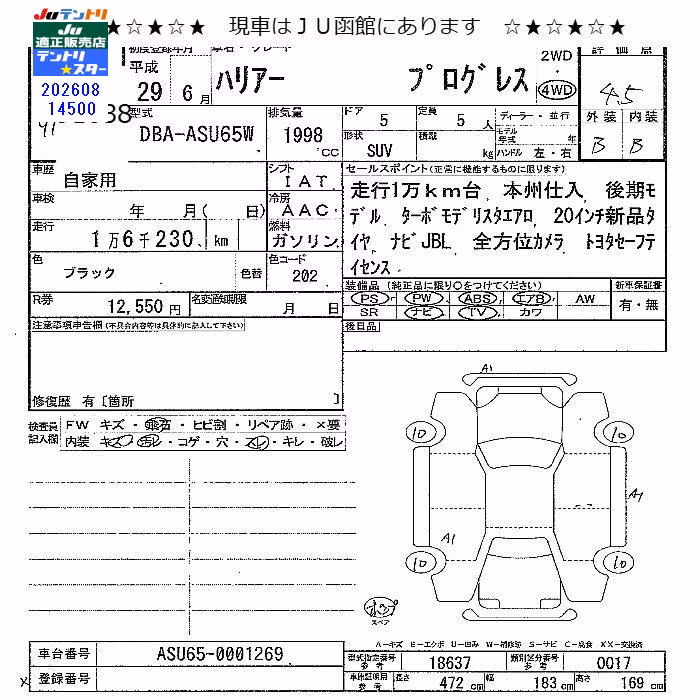 ☆★☆★　現車はＪＵ函館にあります　☆★☆★☆★
Juテントリ
JU適正販売店
テントリ★スター
202608
14500
初度登録年月
車名・グレード
平成
29 6 月
ハリアー プログレス
2WD
4WD
評価点
4.5
外装 内装
B B
型式
DBA-ASU65W
排気量
1998 CC
ドア 5
定員 5 人
形状 SUV
積載 kg
ディーラー・並行
モデル年式 年
ハンドル 左・右
車歴
自家用
シフト
IAT
車検
年 月( 日)
冷房
AAC
走行
1万6千230. km
燃料
ガソリン
色
ブラック 色替
色コード
202
R券 12,550 円
名変通知期限 月 日
セールスポイント(正常に機能するものに限ります)
走行1万km台、本州仕入、後期モ
デル、ターボモデリスタエアロ、20インチ新品タ
イヤ、ナビJBL、全方位カメラ、トヨタセーフテ
イセンス、
装備品(純正品に限り○をつけてください)
新車保証書
PS PW ABS エアB AW
SR ナビ TV カワ
有・無
後日品
注意事項申告欄(不具合内容等は具体的に記入して下さい)
修復歴 有〔箇所 〕
検査員記入欄
FW キズ・飛石・ヒビ割・リペア跡・×要
内装 キズ・汚レ・コゲ・穴・スレ・キレ・破レ
A1
10 10
A1
A1
10 10
スペア
A-キズ E-エクボ U-凹み W-補修跡 S-サビ C-腐食 XX-交換済
車台番号 ASU65-0001269
登録番号
型式指定番号 参考 18637
類別区分番号 参考 0017
車検証明用 参考 長さ 472 cm 幅 183 cm 高さ 169 cm